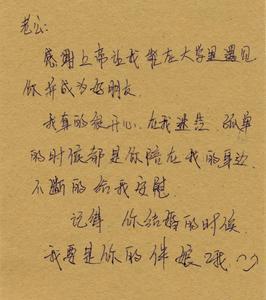 老公:
感谢上帝让我能在大学里遇见
你并成为好朋友.
我真的很开心.在我迷茫.孤单
的时候都是你陪在我的身边
不断的给我安慰.
记得.你结婚的时候.
我要是你的伴娘哦.